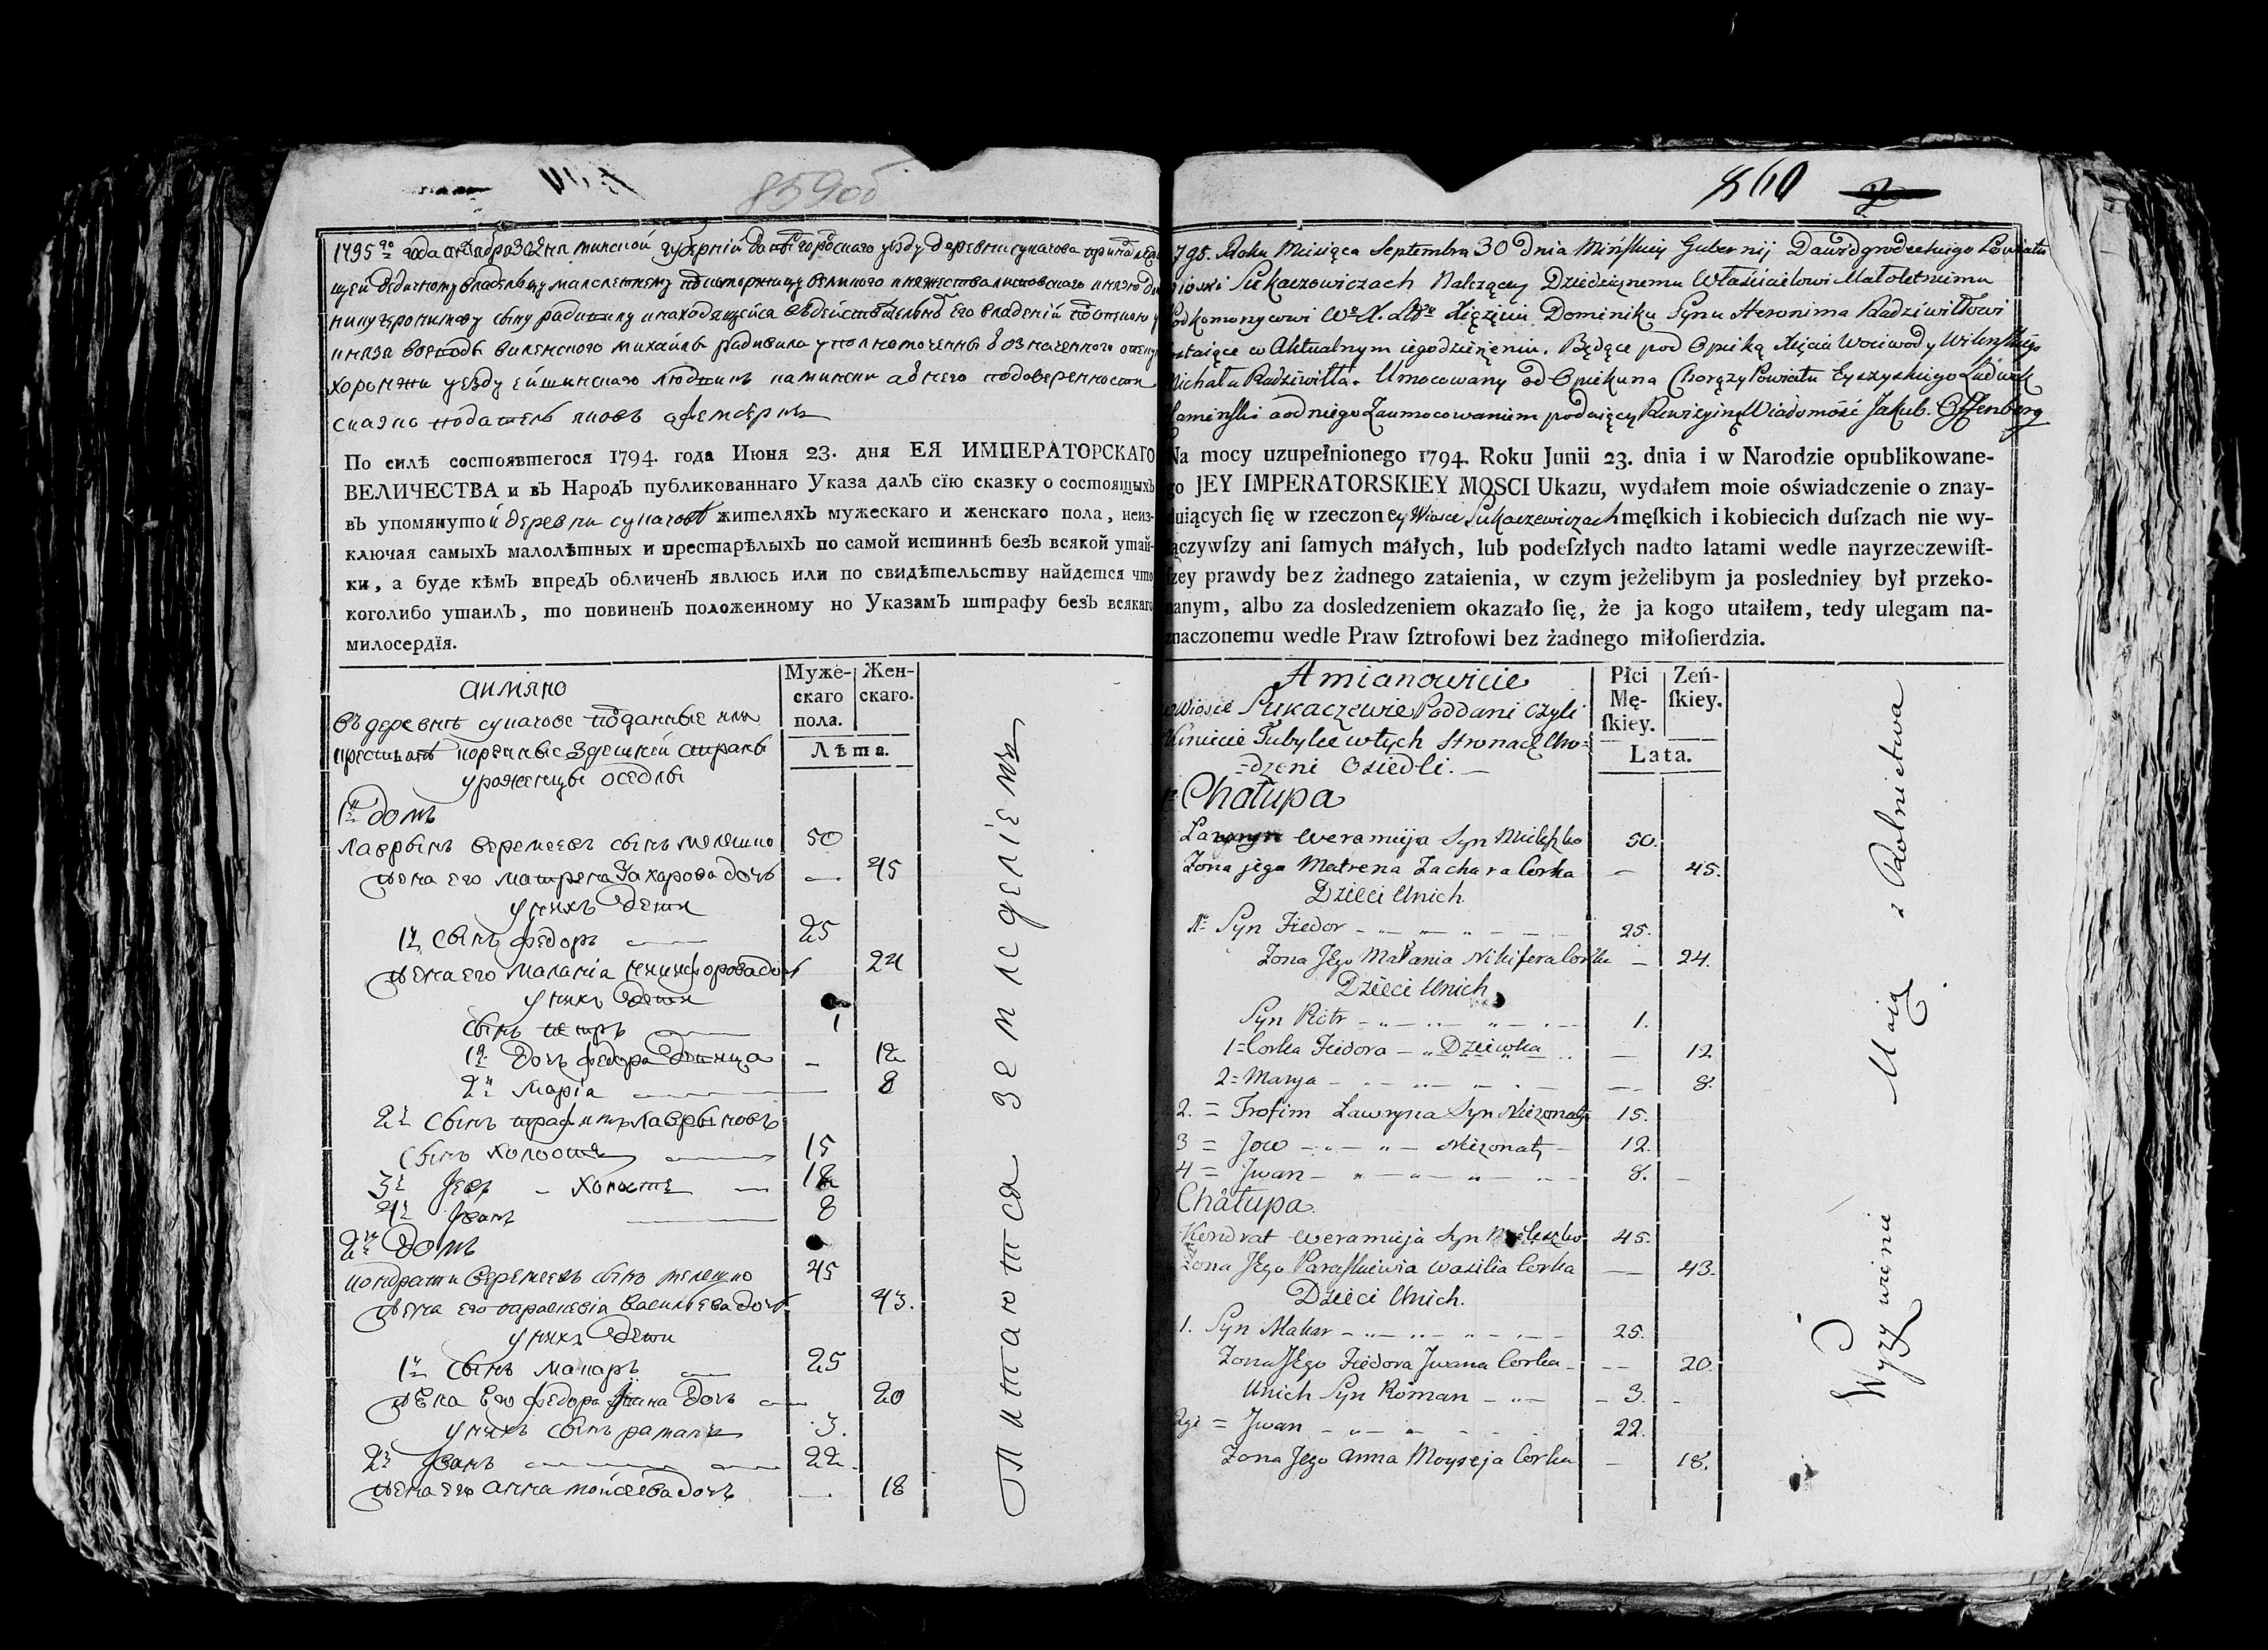 859об
1795го года сентебра 30 дня минской губерний давыгородского уезду деревни сукачова
хоронжи уезду ейшинского
сказки податель яковъ
По силѣ состоявтегося 1794. года Июня 23. дня ЕЯ ИМПЕРАТОРСКАГО
ВЕЛИЧЕСТВА и вЪ НародЪ публикованнаго Указа далЪ сїю сказку о состоящыхЪ
вЪ упомянутой деревни сукачовѣ жителяхЪ мужескаго и женскаго пола, неиз-
ключая самыхЪ малолѣтныхЪ и престарѣлыхЪ по самой истиннѣ безЪ всякой утай-
ки, а буде кѣмЪ впредЪ обличенЪ явлюсь или по свидѣтельству найдется что
коголибо утаилЪ, то повиненЪ положенному но УказамЪ штрафу безЪ всякаго
милосердїя.
аимяно
въ деревнѣ сукачове подданные или
крестьянѣ коренные здешней страны
уроженцы оседлы
Муже-
скаго
пола.
Жен-
скаго.
Лѣта.
1й домъ
лаврынъ веремеевъ сынъ мелешко 50
жена его матрена Захарова дочь — 45
у нихъ дети
1й сынъ федоръ — 25
жена его маланіа никифорова дочь 24
у нихъ дети
сынъ петръ — 1
1я дочь федора девица — 12
2я маріа — 8
2й сынъ трафимъ лаврыновъ
сынъ холостъ — 15
3й Іевъ — холостъ — 12
4й Іванъ — 8
2й домъ
кондрати веремеевъ сынъ мелешко 45
жена его параскевіа васильева дочь 43.
у нихъ дети
1й сынъ макаръ — 25
жена его федора Івана дочь — 20
у нихъ сынъ раманъ 3.
2й Іванъ — 22.
жена его анна мойсеева дочь — 18
Питаются земледеліемъ
860
1795. Roku Miesiąca Septembra 30 dnia Mińskiey Gubernij Dawidgrodeckiego Powiatu
Sukaczowiczach Należący Dziedzicznemu Właścicielowi Małoletnimu
Podkomorzycowi Xiężęciu Dominiku Synu Heronima Radziwiłłowi
w Aktualnym iego dzierżeniu. Będące pod Opieką Xięcia Woiewody Wileńskiego
Michała Radziwiłła. Umocowany od Opiekuna Chorąży Powiatu Eyszyskiego Ludwik
Kamieński a od niego Zaumocowaniem podaiący Rewizyiną Wiadomość Jakub. Offenberg
Na mocy uzupełnionego 1794. Roku Junii 23. dnia i w Narodzie opublikowane-
go JEY IMPERATORSKIEY MOSCI Ukazu, wydałem moie oświadczenie o znay-
duiących ſię w rzeczoney Wiosce Sukaczewiczach męſkich i kobiecich duſzach nie wy-
łączywſzy ani ſamych małych, lub podeſzłych nadto latami wedle nayrzeczewiſt-
ſzey prawdy bez żadnego zataienia, w czym jeżelibym ja posledniey był przeko-
nanym, albo za dosledzeniem okazało ſię, że ja kogo utaiłem, tedy ulegam na-
znaczonemu wedle Praw ſztrofowi bez żadnego miłoſierdzia.
Amianowicie
Wiosce Sukaczewie Poddani czyli
Kmiecie Tubylce w tych stronach Uro=
=dzeni Osiedli. —
Płci
Mę-
ſkiey.
Żeń-
ſkiey.
Lata.
Chałupa
Ławryn Weramieja Syn Mieleszko 50.
Zona jego Matrena Zachara Corka — 45.
Dzieci Unich.
1e Syn Fiedor — 25.
Zona Jego Małania Nikifera Corka — 24.
Dzieci Unich
Syn Piotr — 1.
1= Corka Fiedora — Dziewka — 12
2= Marya — 8.
2. = Trofim Ławryna Syn Nieżonaty 15.
3 = Jow — Nieżonaty — 12.
4 = Jwan — 8. —
Chałupa.
Kondrat Weramieja Syn Mieleszko 45.
Zona Jego Paraskiewia Wasilia Corka — 43.
Dzieci Unich.
1. Syn Makar — 25.
Zona Jego Fiedora Jwana Corka — 20.
Unich Syn Roman — 3. —
2gi = Jwan — 22.
Zona Jego Anna Moyseja Corka — 18.
Wyżywienie Maią z Rolnictwa